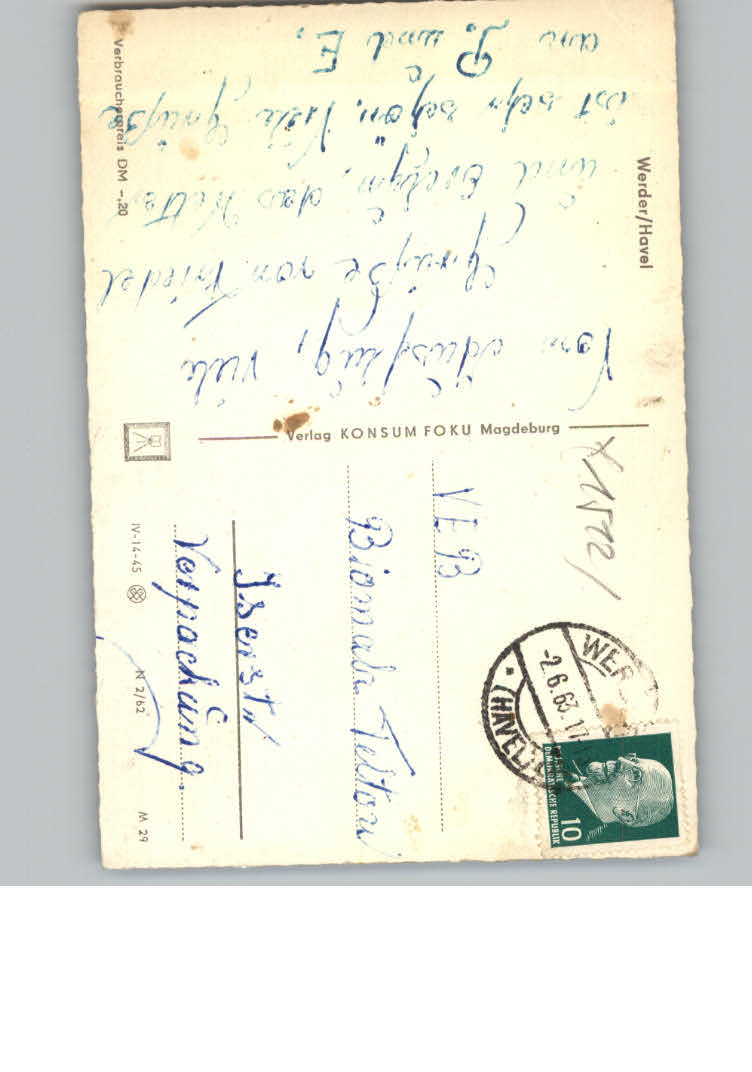 Werder/Havel
Vom Ausflug, viele
Grüße von Friedel
und Evelyn, das Wetter
ist sehr schön. Viele Grüße
an P. und E.
Verbraucherpreis DM -,20
Verlag KONSUM FOKU Magdeburg
X1522/
WER
-2.6.63.17
(HAVEL)
DEMOKRATISCHE REPUBLIK
10
VEB
Biomalz Teltow
Iserstr
Verpackung.
IV-14-45
N 2/62
M 29